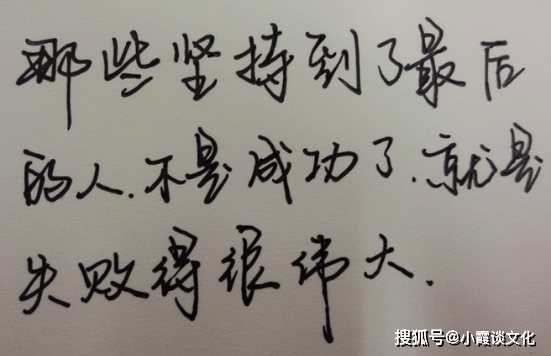 那些坚持到了最后
的人.不是成功了.就是
失败得很伟大.
搜狐号@小霞谈文化